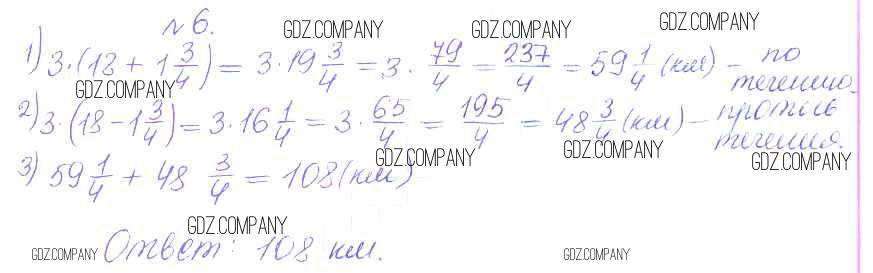 № 6. GDZ.COMPANY GDZ.COMPANY GDZ.COMPANY
1) 3·(18 + 1 3/4) = 3·19 3/4 = 3· 79/4 = 237/4 = 59 1/4 (км) – по течению.
GDZ.COMPANY
2) 3·(18 – 1 3/4) = 3·16 1/4 = 3· 65/4 = 195/4 = 48 3/4 (км) – против течения.
GDZ.COMPANY GDZ.COMPANY GDZ.COMPANY
3) 59 1/4 + 48 3/4 = 108 (км)
GDZ.COMPANY
GDZ.COMPANY Ответ: 108 км. GDZ.COMPANY